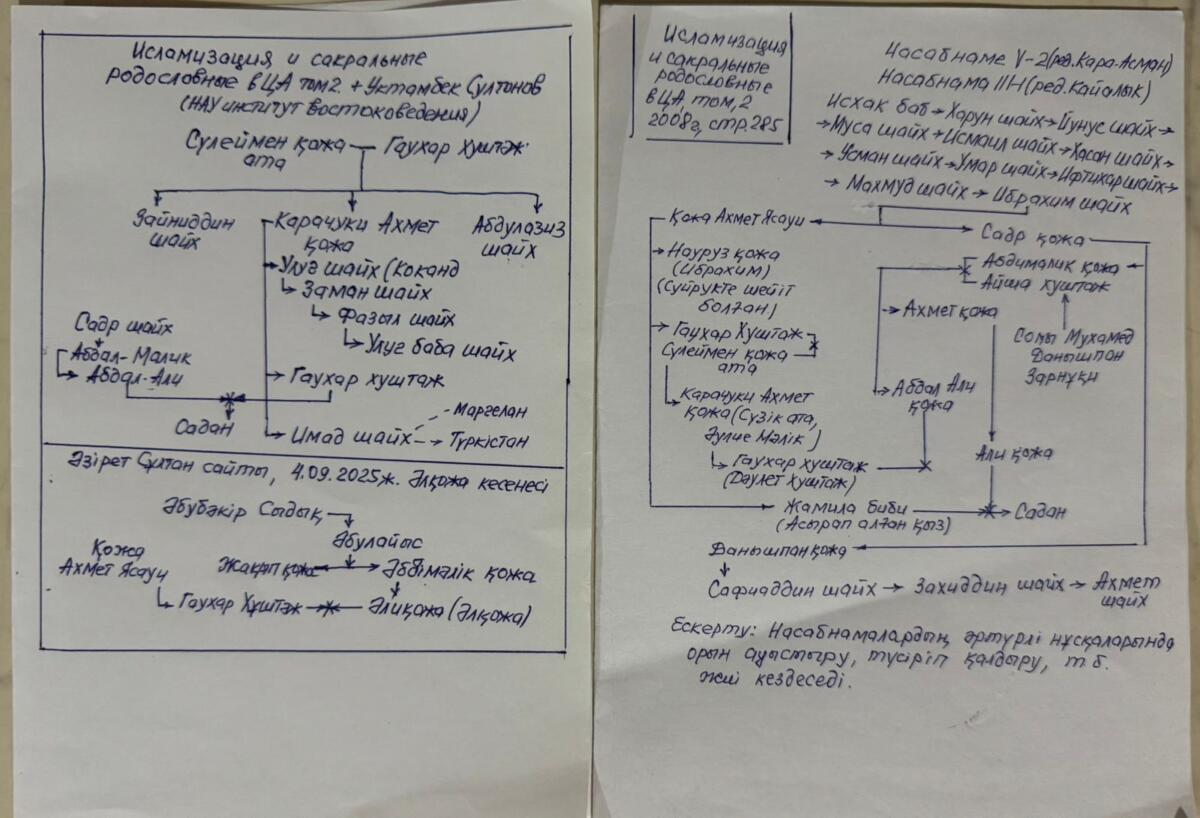 Исламизация и сакральные
родословные в ЦА том 2 + Уктамбек Султонов
(НАУ институт востоковедения)
Сүлеймен қожа ата — Гаухар хуштәж
Зайниддин шайх
Карачуки Ахмет қожа
Абдулазиз шайх
Улуғ шайх (Коканд
Заман шайх
Фазыл шайх
Улуг баба шайх
Садр шайх
Абдал-Малик
Абдал-Али
Гаухар хуштаж
Садан
Имад шайх
Маргелан
Түркістан
Әзірет Сұлтан сайты, 4.09.2025ж. Әлқожа кесенесі
Әбубәкір Сыдық
Әбулайыс
Қожа Ахмет Ясауи
Жақып қожа
Әбдімәлік қожа
Гаухар Хуштәж
Әлиқожа (Әлқожа)
Исламизация
и сакральные
родословные
в ЦА, том, 2
2008г, стр. 285
Насабнаме У-2 (ред. Кара-Асман)
Насабнама IIН (ред. Кайалык)
Исхак баб → Харун шайх → Йунус шайх →
→ Муса шайх → Исмаил шайх → Хасан шайх →
→ Усман шайх → Умар шайх → Ифтихар шайх →
→ Махмуд шайх → Ибрахим шайх
Қожа Ахмет Ясауи
Садр қожа
Науруз қожа
(Ибрахим)
(Суйрукте шейіт
болған.)
Абдималик қожа
Айша хуштаж
Ахмет қожа
Гаухар Хуштаж
Сүлеймен қожа
ата
Сопы Мухамед
Данышпан
Зарнұқи
Карачуки Ахмет
қожа (Сүзік ата,
Әулие Мәлік)
Абдал Али
қожа
Гаухар хуштаж
(Дәулет Хуштаж)
Али қожа
Жамила биби
(Асырап алған қыз)
→ Садан
Данышпан қожа
Сафиаддин шайх → Захиддин шайх → Ахмет
шайх
Ескерту: Насабнамалардың әртүрлі нұсқаларында
орын ауыстыру, түсіріп қалдыру, т.б.
жиі кездеседі.